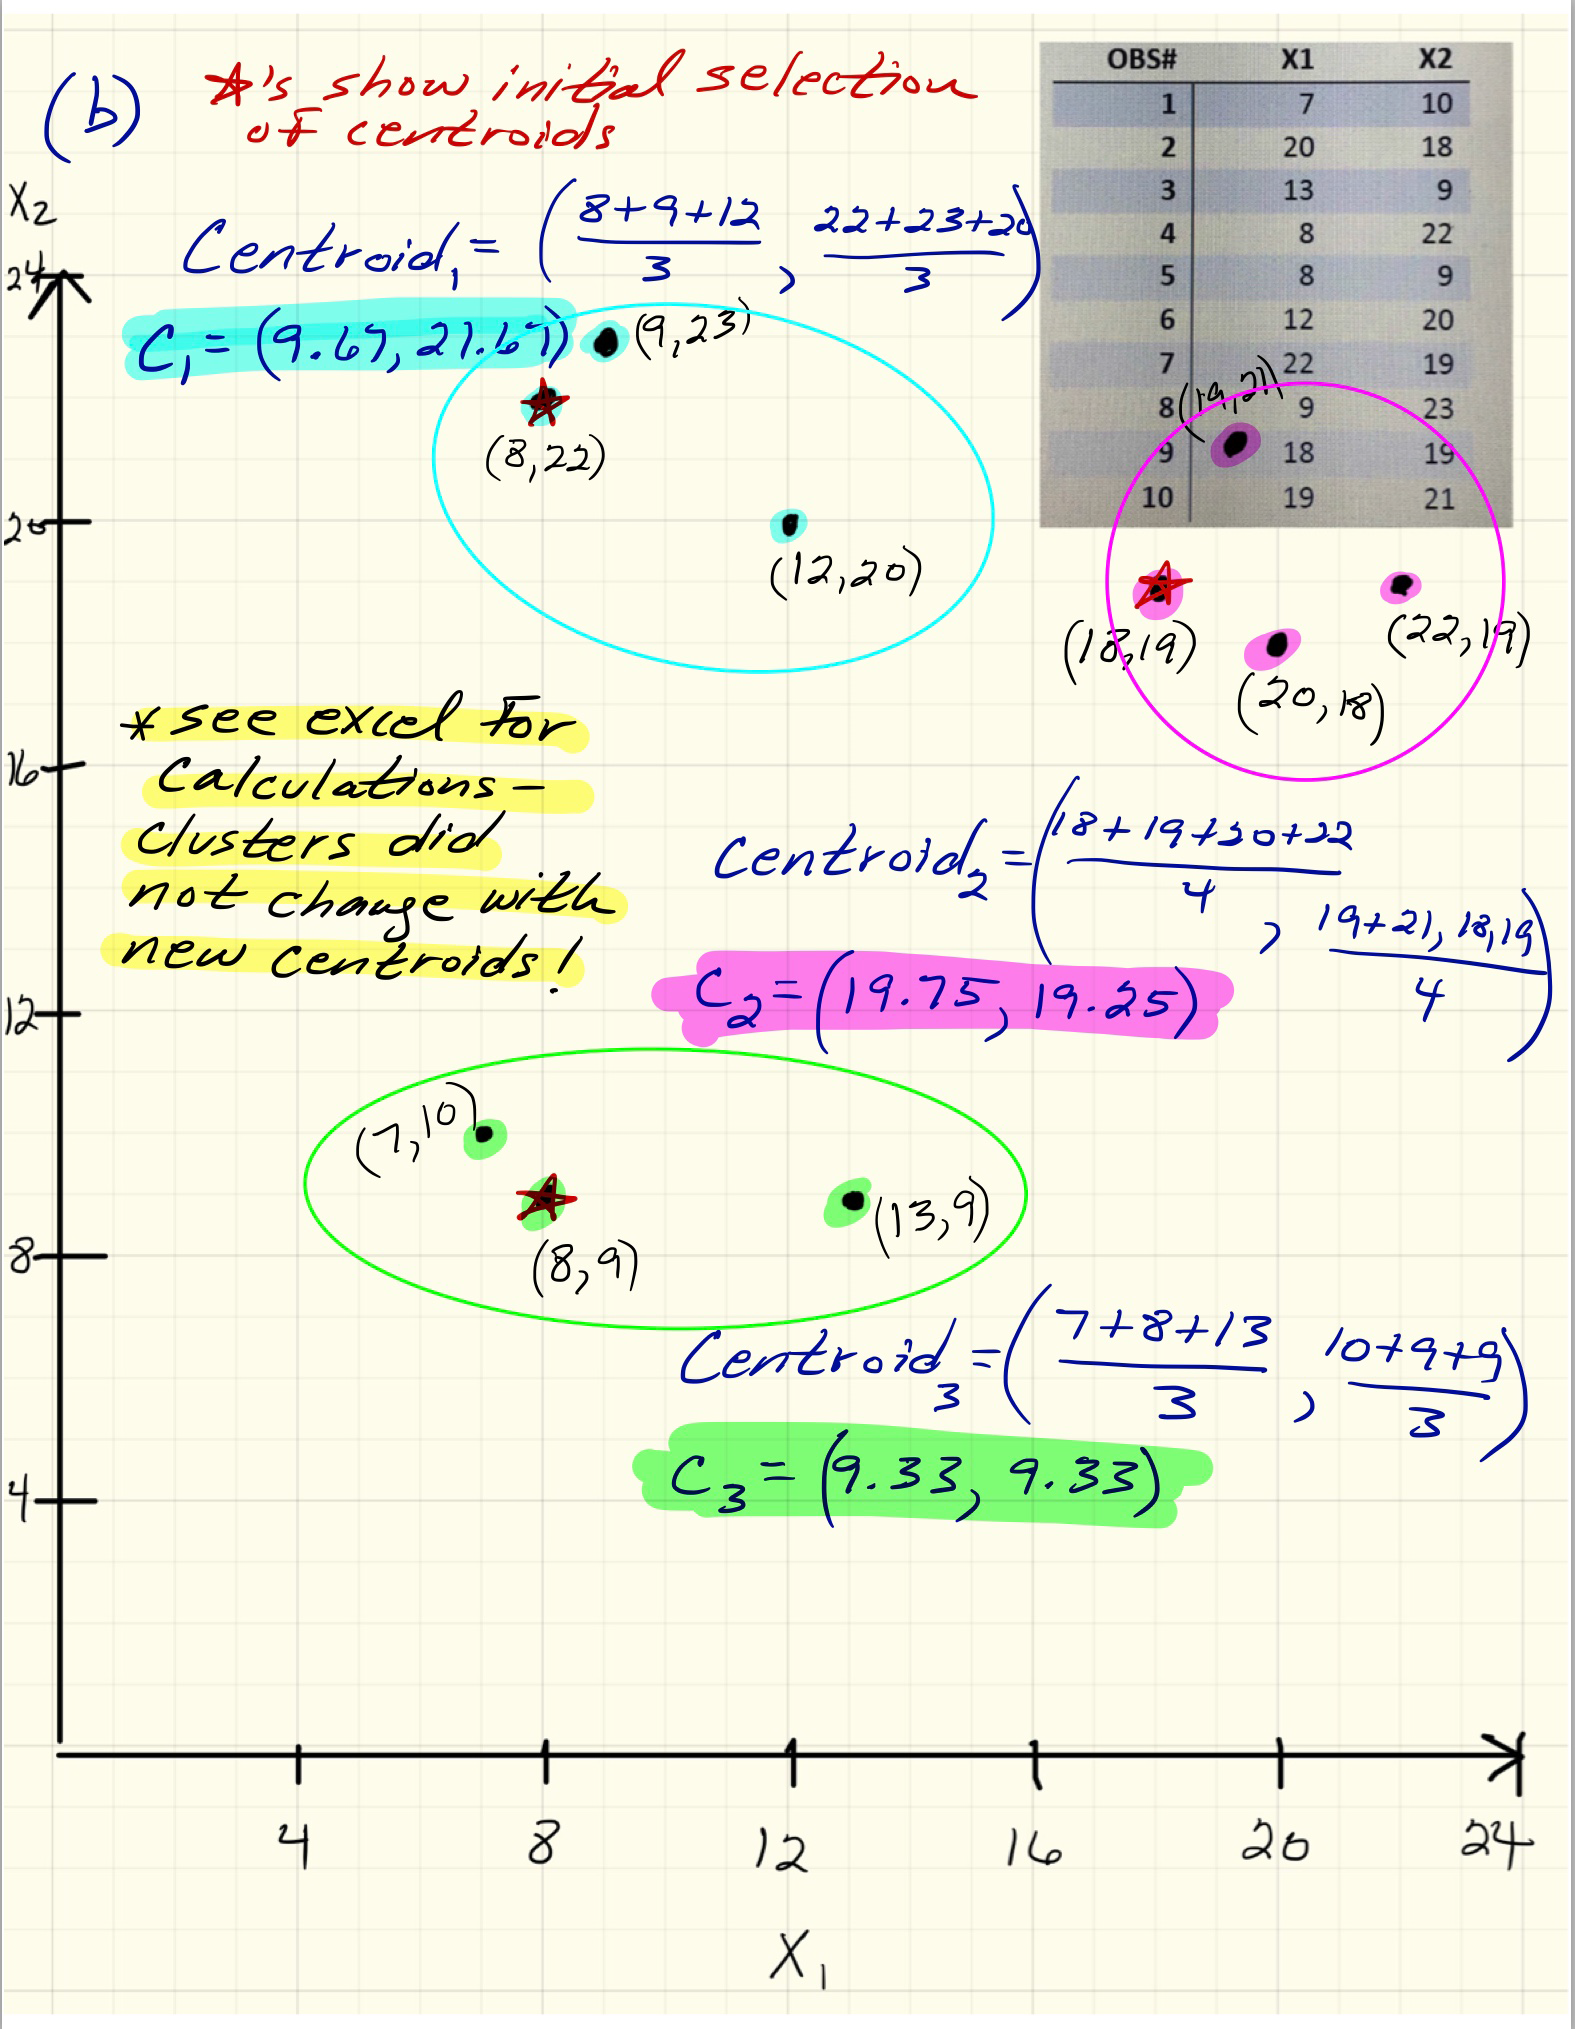 (b)
☆'s show initial selection
of centroids
OBS# X1 X2
1 7 10
2 20 18
3 13 9
4 8 22
5 8 9
6 12 20
7 22 19
8 9 23
9 18 19
10 19 21
X2
Centroid1 = (8+9+12/3, 22+23+20/3)
C1 = (9.67, 21.67)
(9,23)
(19,21)
(8,22)
(12,20)
(18,19)
(22,19)
(20,18)
* see excel for
Calculations -
Clusters did
not change with
new centroids!
Centroid2 = (18+19+20+22/4, 19+21,18,19/4)
C2 = (19.75, 19.25)
(7,10)
(13,9)
(8,9)
Centroid3 = (7+8+13/3, 10+9+9/3)
C3 = (9.33, 9.33)
24
20
16
12
8
4
4 8 12 16 20 24
X1